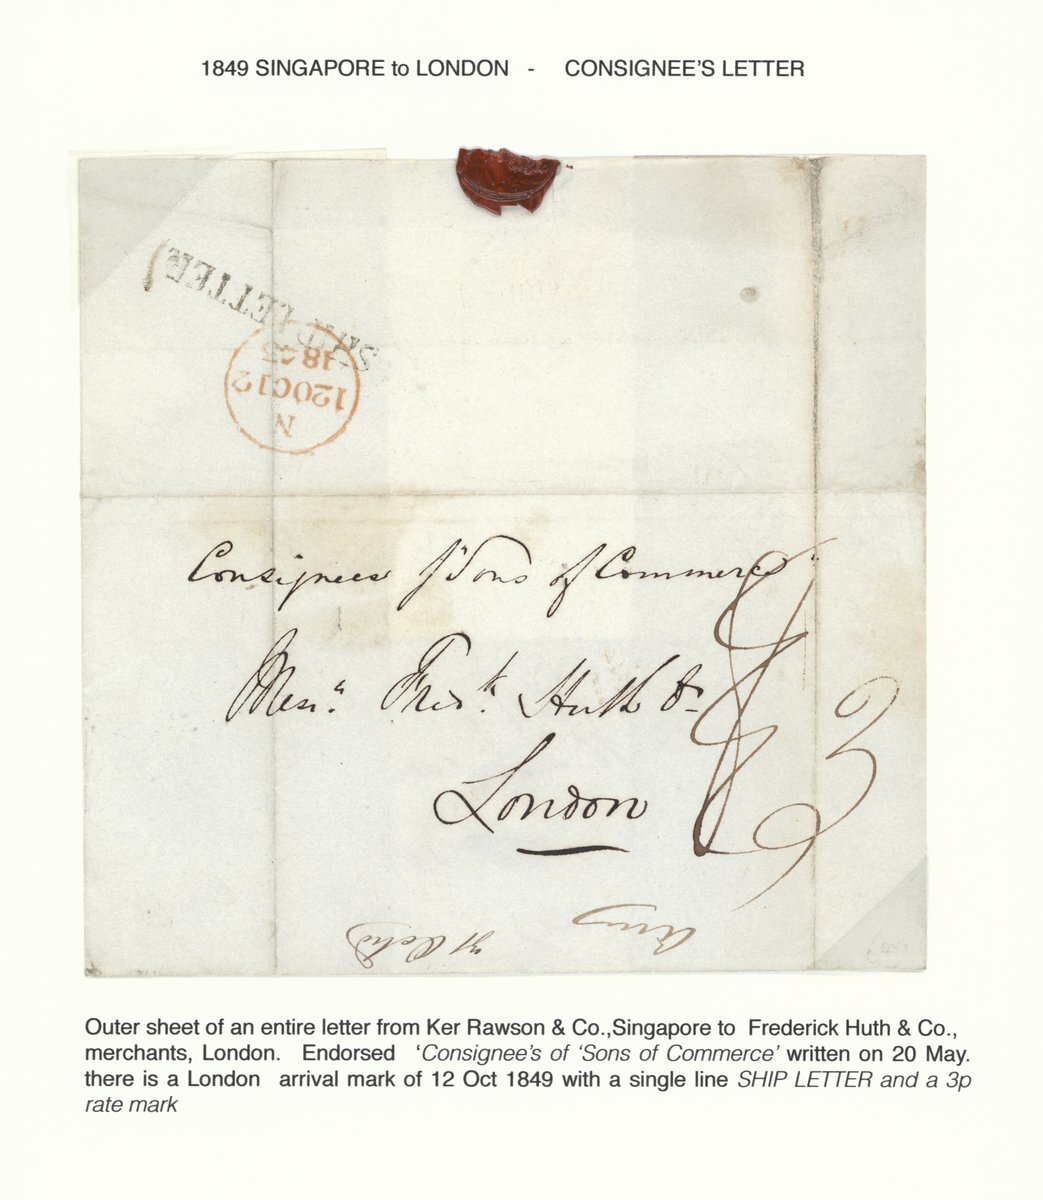 1849 SINGAPORE to LONDON - CONSIGNEE'S LETTER
SHIP LETTER
N
12OC12
18
Consignees pr Sons of Commerce
Messrs. Fredk. Huth & Co
London
3
Outer sheet of an entire letter from Ker Rawson & Co.,Singapore to Frederick Huth & Co.,
merchants, London. Endorsed ‘Consignee's of ‘Sons of Commerce’ written on 20 May.
there is a London arrival mark of 12 Oct 1849 with a single line SHIP LETTER and a 3p
rate mark